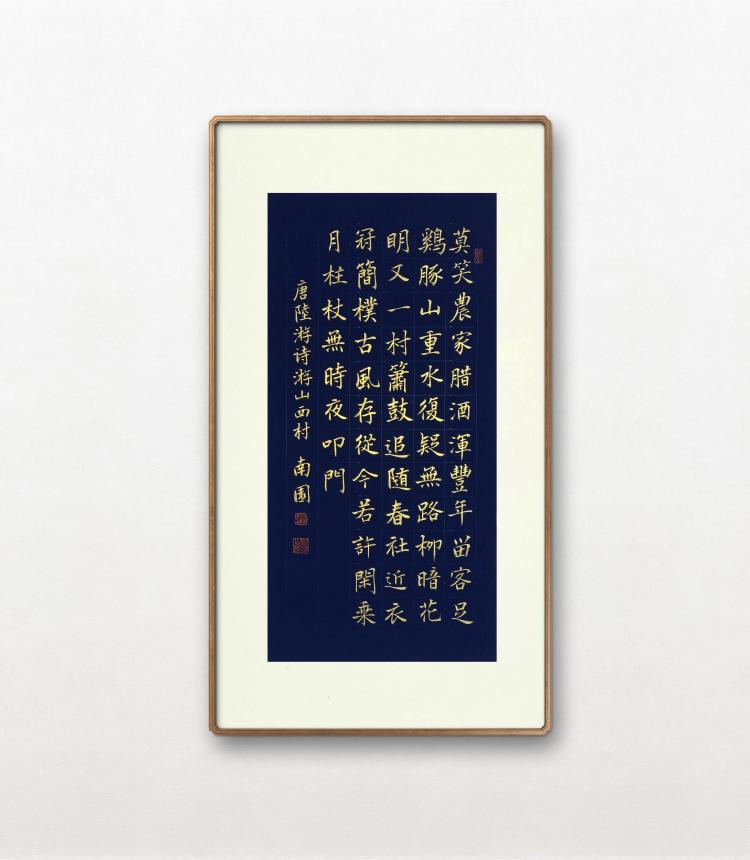 莫笑農家腊酒渾豐年留客足
鷄豚山重水復疑無路柳暗花
明又一村簫鼓追随春社近衣
冠簡樸古風存從今若許閑乘
月柱杖無時夜叩門
唐陸游诗游山西村 南園